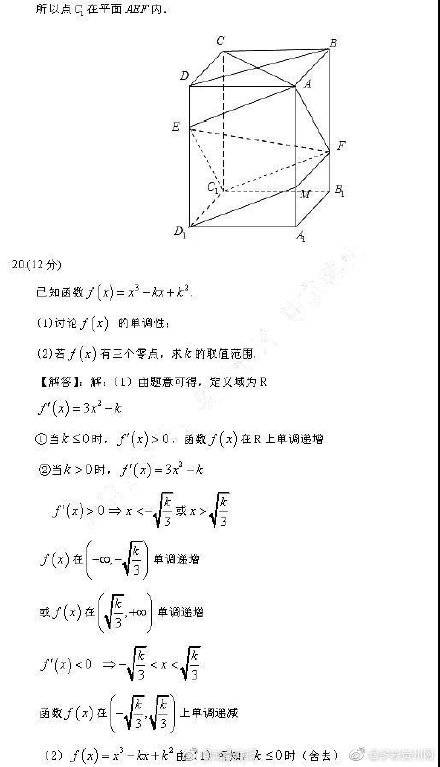 所以点C₁在平面AEF内.
C
B
D
A
E
F
C₁
M
B₁
D₁
A₁
20.(12分)
已知函数f(x)=x³−kx+k².
(1)讨论f(x) 的单调性;
(2)若f(x)有三个零点，求k的取值范围.
【解答】：解：(1)由题意可得，定义域为R
f′(x)=3x²−k
①当k≤0时，f′(x)>0，函数f(x)在R上单调递增
②当k>0时，f′(x)=3x²−k
f′(x)>0⇒x<−√(k/3)或x>√(k/3)
f(x)在(−∞,−√(k/3))单调递增
或f(x)在(√(k/3),+∞)单调递增
f′(x)<0 ⇒−√(k/3)<x<√(k/3)
函数f(x)在(−√(k/3),√(k/3))上单调递减
(2) f(x)=x³−kx+k²由(1)可知，k≤0时(舍去)